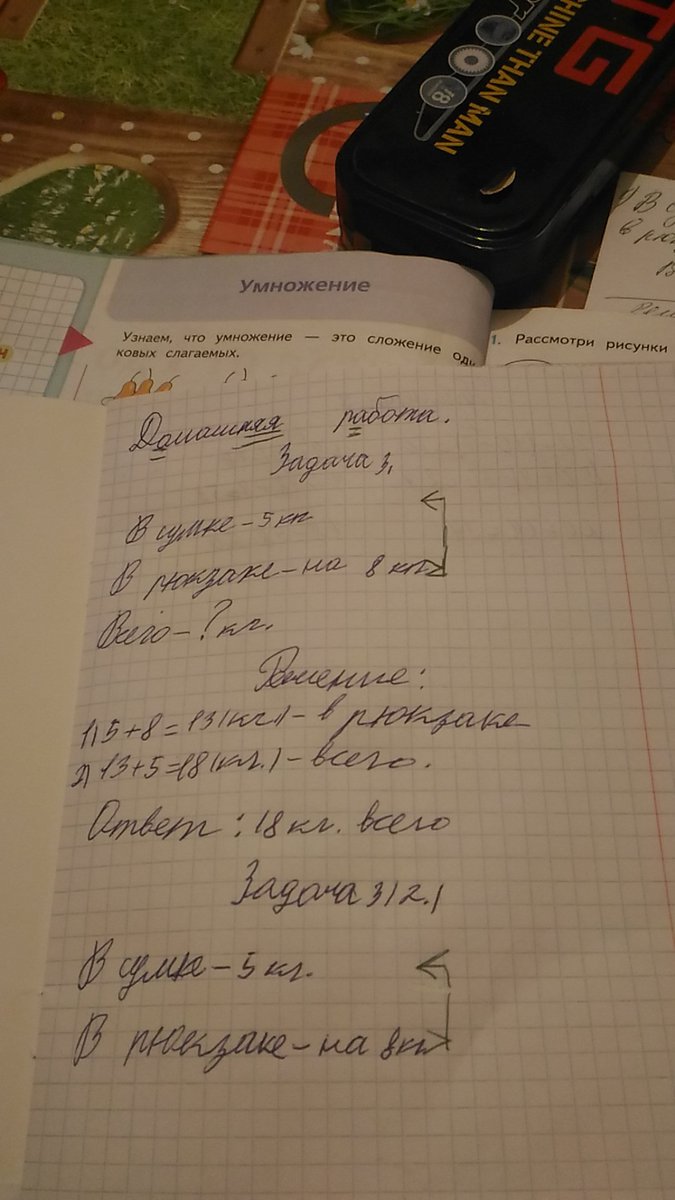 TG
CHINE THAN MAN
18
1) В с
в рю
Умножение
Узнаем, что умножение — это сложение оди
ковых слагаемых.
1. Рассмотри рисунки
н
Домашняя работа.
Задача 3,
В сумке - 5 кг
В рюкзаке - на 8 кг
Всего - ? кг.
Решение:
1) 5 + 8 = 13 (кг.) - в рюкзаке
2) 13 + 5 = 18 (кг.) - всего.
Ответ: 18 кг. всего
Задача 3 (2.)
В сумке - 5 кг.
В рюкзаке - на 8 кг